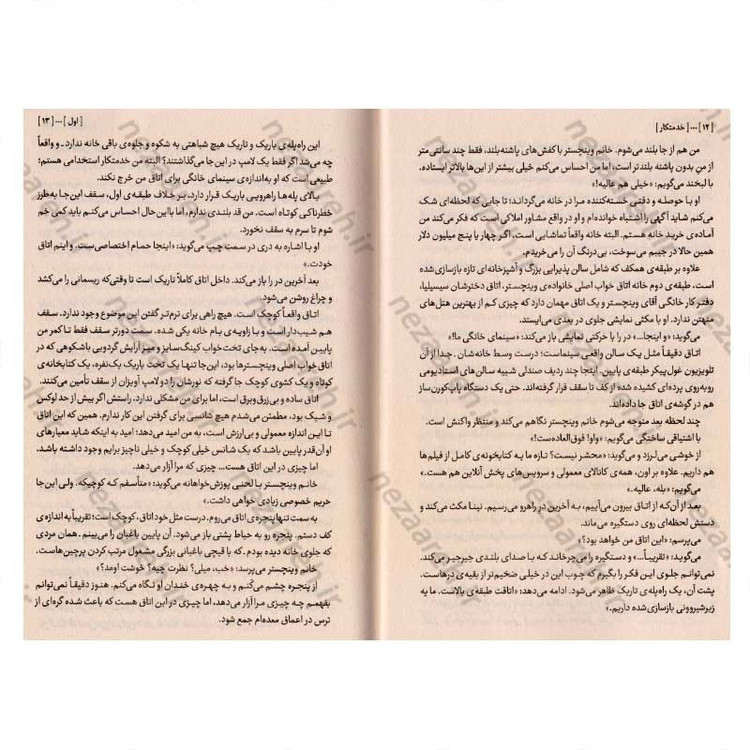 [ ۱۲ ] ... [ خدمتکار ]
من هم از جا بلند می‌شوم. خانم وینچستر با کفش‌های پاشنه‌بلند، فقط چند سانتی‌متر
از من بدون پاشنه بلندتر است، اما من احساس می‌کنم خیلی بیشتر از این‌ها بالاتر ایستاده.
با لبخند می‌گویم: «خیلی هم عالیه!»
او با حوصله و دقتی خسته‌کننده مرا در خانه می‌گرداند؛ تا جایی که لحظه‌ای شک
می‌کنم شاید آگهی را اشتباه خوانده‌ام و او در واقع مشاور املاکی است که فکر می‌کند من
آماده‌ی خرید خانه هستم. البته خانه واقعاً تماشایی است، اگر چهار یا پنج میلیون دلار
همین حالا در جیبم می‌سوخت، بی‌درنگ آن را می‌خریدم.
علاوه بر طبقه‌ی همکف که شامل سالن پذیرایی بزرگ و آشپزخانه‌ای تازه بازسازی‌شده
است، طبقه‌ی دوم خانه اتاق خواب اصلی خانواده‌ی وینچستر، اتاق دخترشان سیسیلیا،
دفتر کار خانگی آقای وینچستر و یک اتاق مهمان دارد که چیزی کم از بهترین هتل‌های
منهتن ندارد. او با مکثی نمایشی جلوی در بعدی می‌ایستد.
می‌گوید: «و اینجا...» در را با حرکتی نمایشی باز می‌کند: «سینمای خانگی ما!»
اتاق دقیقاً مثل یک سالن واقعی سینماست؛ درست وسط خانه‌شان. جدا از آن
تلویزیون غول‌پیکر طبقه‌ی پایین. اینجا چند ردیف صندلی شبیه سالن‌های استادیومی
روبه‌روی پرده‌ای کشیده شده از کف تا سقف قرار گرفته‌اند. حتی یک دستگاه پاپ‌کورن‌ساز
هم در گوشه‌ی اتاق جا داده‌اند.
چند لحظه بعد متوجه می‌شوم خانم وینچستر نگاهم می‌کند و منتظر واکنش است.
با اشتیاقی ساختگی می‌گویم: «واو! فوق‌العاده‌ست!»
از خوشی می‌لرزد و می‌گوید: «محشر نیست؟ تازه ما یه کتابخونه‌ی کامل از فیلم‌ها
هم داریم. علاوه بر اون، همه‌ی کانالای معمولی و سرویس‌های پخش آنلاین هم هست.»
می‌گویم: «بله، عالیه.»
بعد از آن‌که از اتاق بیرون می‌آییم، به آخرین در راهرو می‌رسیم. نینا مکث می‌کند و
دستش لحظه‌ای روی دستگیره می‌ماند.
می‌پرسم: «این اتاق من خواهد بود؟»
می‌گوید: «تقریباً...» و دستگیره را می‌چرخاند که با صدای بلندی جیرجیر می‌کند.
نمی‌توانم جلوی این فکر را بگیرم که چوب این در خیلی ضخیم‌تر از بقیه‌ی درهاست.
پشت آن، یک راه‌پله‌ی تاریک ظاهر می‌شود. ادامه می‌دهد: «اتاقت طبقه‌ی بالاست. ما یه
زیرشیروونی بازسازی‌شده داریم.»
[ اول ] ... [ ۱۳ ]
این راه‌پله‌ی باریک و تاریک هیچ شباهتی به شکوه و جلوه‌ی باقی خانه ندارد ـ و واقعاً
چه می‌شد اگر فقط یک لامپ در این‌جا می‌گذاشتند؟ البته من خدمتکار استخدامی هستم؛
طبیعی است که او به‌اندازه‌ی سینمای خانگی برای اتاق من خرج نکند.
بالای پله‌ها راهرویی باریک قرار دارد. بر خلاف طبقه‌ی اول، سقف این‌جا به‌طرز
خطرناکی کوتاه است. من قد بلندی ندارم، اما با این‌حال احساس می‌کنم باید کمی خم
شوم تا سرم به سقف نخورد.
او با اشاره به دری در سمت چپ می‌گوید: «اینجا حمام اختصاصی‌ست. و اینم اتاق
خودت.»
بعد آخرین در را باز می‌کند. داخل اتاق کاملاً تاریک است تا وقتی‌که ریسمانی را می‌کشد
و چراغ روشن می‌شود.
اتاق واقعاً کوچک است. هیچ راهی برای نرم‌تر گفتن این موضوع وجود ندارد. سقف
هم شیب‌دار است و با زاویه‌ی بام خانه یکی شده. سمت دورتر سقف فقط تا کمر من
پایین آمده است. به‌جای تخت‌خواب کینگ‌سایز و میز آرایش گردویی باشکوهی که در
اتاق خواب اصلی وینچسترها بود، این‌جا تنها یک تخت باریک یک‌نفره، یک کتابخانه‌ی
کوتاه و یک کشوی کوچک جا گرفته که نورشان را دو لامپ آویزان از سقف تأمین می‌کنند.
اتاق ساده و بی‌زرق‌وبرق است، اما برای من مشکلی ندارد. راستش اگر بیش از حد لوکس
و شیک بود، مطمئن می‌شدم هیچ شانسی برای گرفتن این کار ندارم. همین که این اتاق
تا این اندازه معمولی و بی‌ارزش است، به من امید می‌دهد؛ امید به اینکه شاید معیارهای
او آن‌قدر پایین باشد که یک شانس خیلی کوچک و خیلی ناچیز برایم وجود داشته باشد.
اما چیزی در این اتاق هست... چیزی که مرا آزار می‌دهد.
خانم وینچستر با لحنی پوزش‌خواهانه می‌گوید: «متأسفم که کوچیکه. ولی این‌جا
حریم خصوصی زیادی خواهی داشت.»
به سمت تنها پنجره‌ی اتاق می‌روم. درست مثل خود اتاق، کوچک است؛ تقریباً به اندازه‌ی
کف دستم. پنجره رو به حیاط پشتی باز می‌شود. آن پایین باغبان را می‌بینم. همان مردی
که جلوی خانه دیده بودم. که با قیچی باغبانی بزرگی مشغول مرتب کردن پرچین‌هاست.
خانم وینچستر می‌پرسد: «خب، میلی؟ نظرت چیه؟ خوشت اومد؟»
از پنجره چشم می‌کَنم و به چهره‌ی خندان او نگاه می‌کنم. هنوز دقیقاً نمی‌توانم
بفهمم چه چیزی مرا آزار می‌دهد، اما چیزی در این اتاق هست که باعث شده گره‌ای از
ترس در اعماق معده‌ام جمع شود.
nezaareh.ir